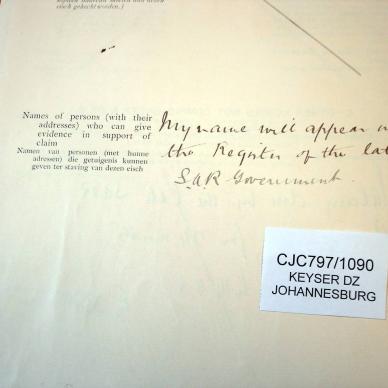 eisch gedacht worden.)
Names of persons (with their
addresses) who can give
evidence in support of
claim
Namen van personen (met hunne
adressen) die getuigenis kunnen
geven ter staving van dezen eisch
My name will appear
the Register of the
S.A.R. Government.
CJC797/1090
KEYSER DZ
JOHANNESBURG